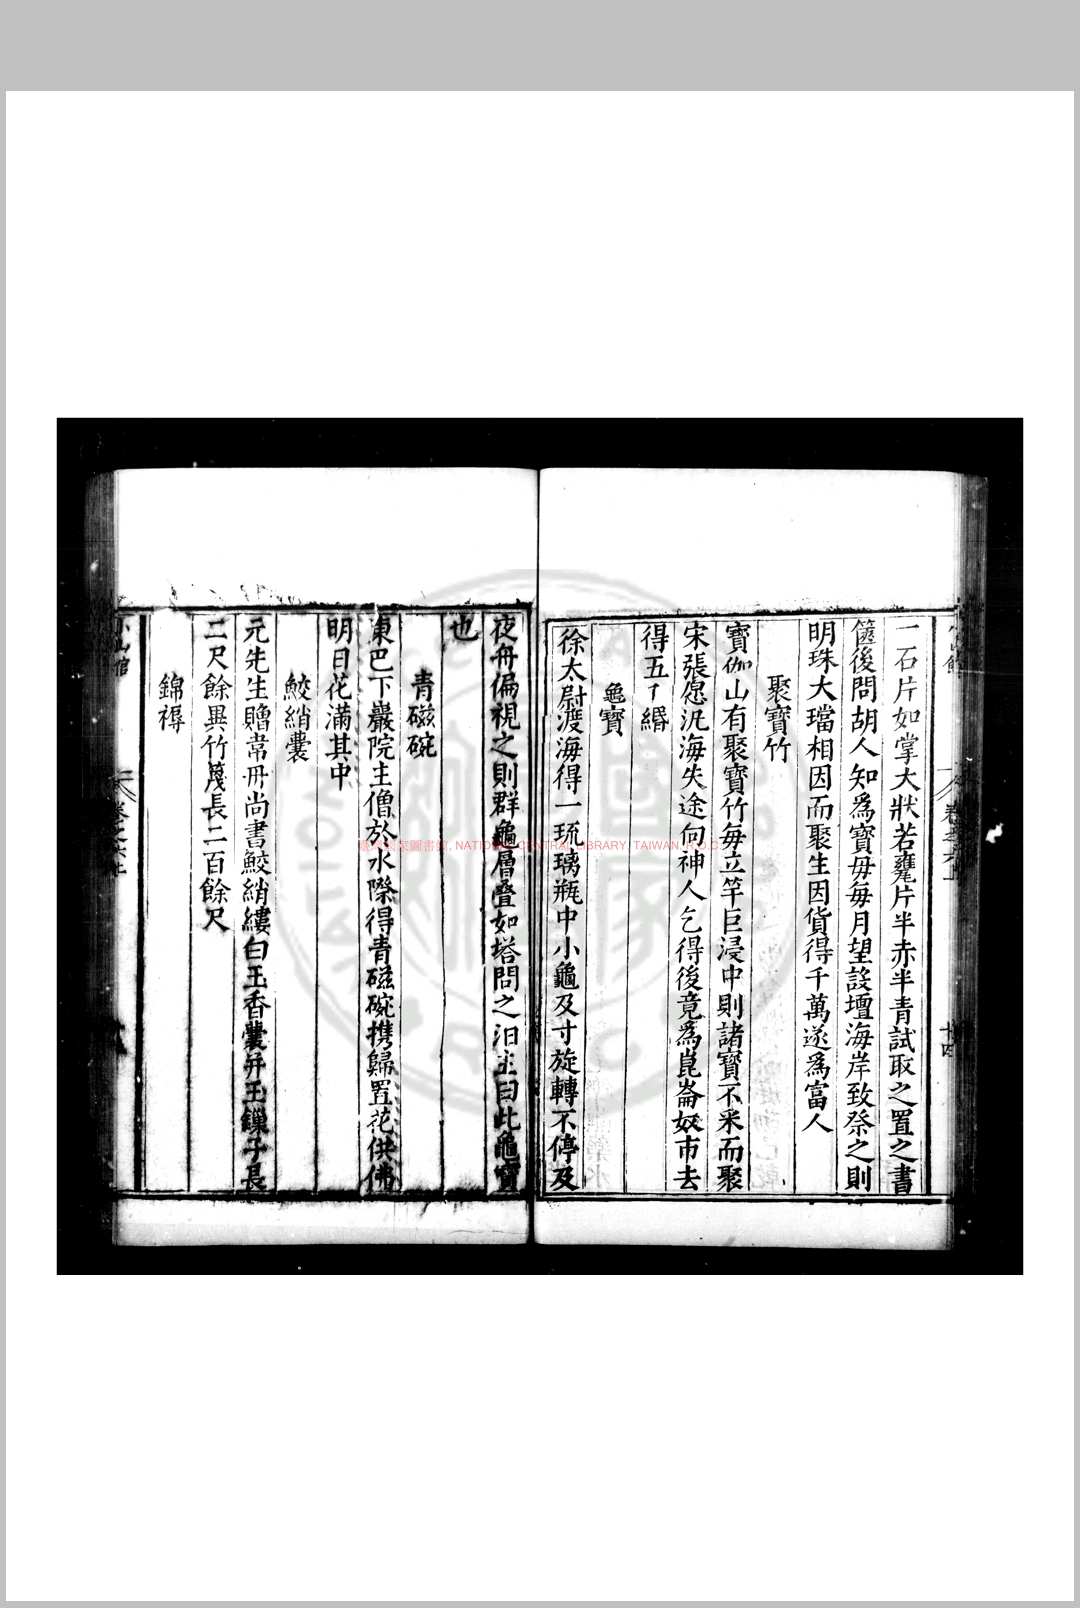 一石片如掌大狀若甕片半赤半青試取之置之書
篋後問胡人知爲寶毋每月望設壇海岸致祭之則
明珠大璫相因而聚生因貨得千萬遂爲富人
聚寶竹
寶伽山有聚寶竹每立竿巨浸中則諸寶不采而聚
宋張愿汎海失途向神人乞得後竟爲崑崙奴市去
得五丁緡
龜寶
徐太尉渡海得一琉璃瓶中小龜及寸旋轉不停及
夜舟偏視之則群龜層疊如塔問之泊主曰此龜寶
也
青磁碗
東巴下巖院主僧於水際得青磁碗携歸置花供佛
明日花滿其中
鮫綃囊
元先生贈韋丹尚書鮫綃縷白玉香囊并玉鏁子長
二尺餘異竹篾長二百餘尺
錦褥
卷之六上
十四
NATIONAL CENTRAL LIBRARY, TAIWAN, R.O.C.